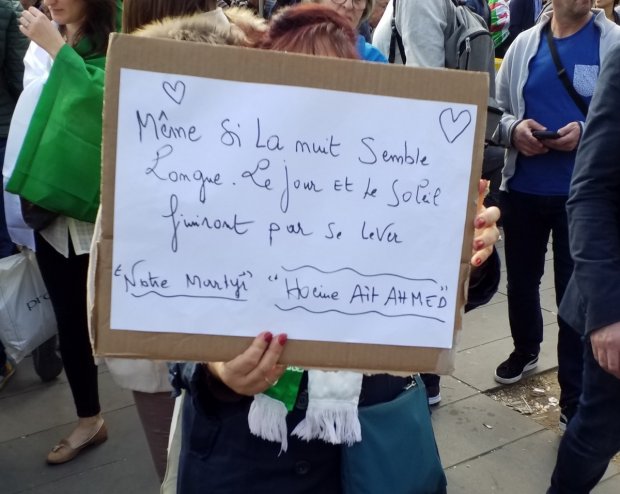 Même Si La nuit Semble
Longue. Le jour et le Soleil
finiront par se lever
"Notre Martyr" "Hocine Aït AHMED"